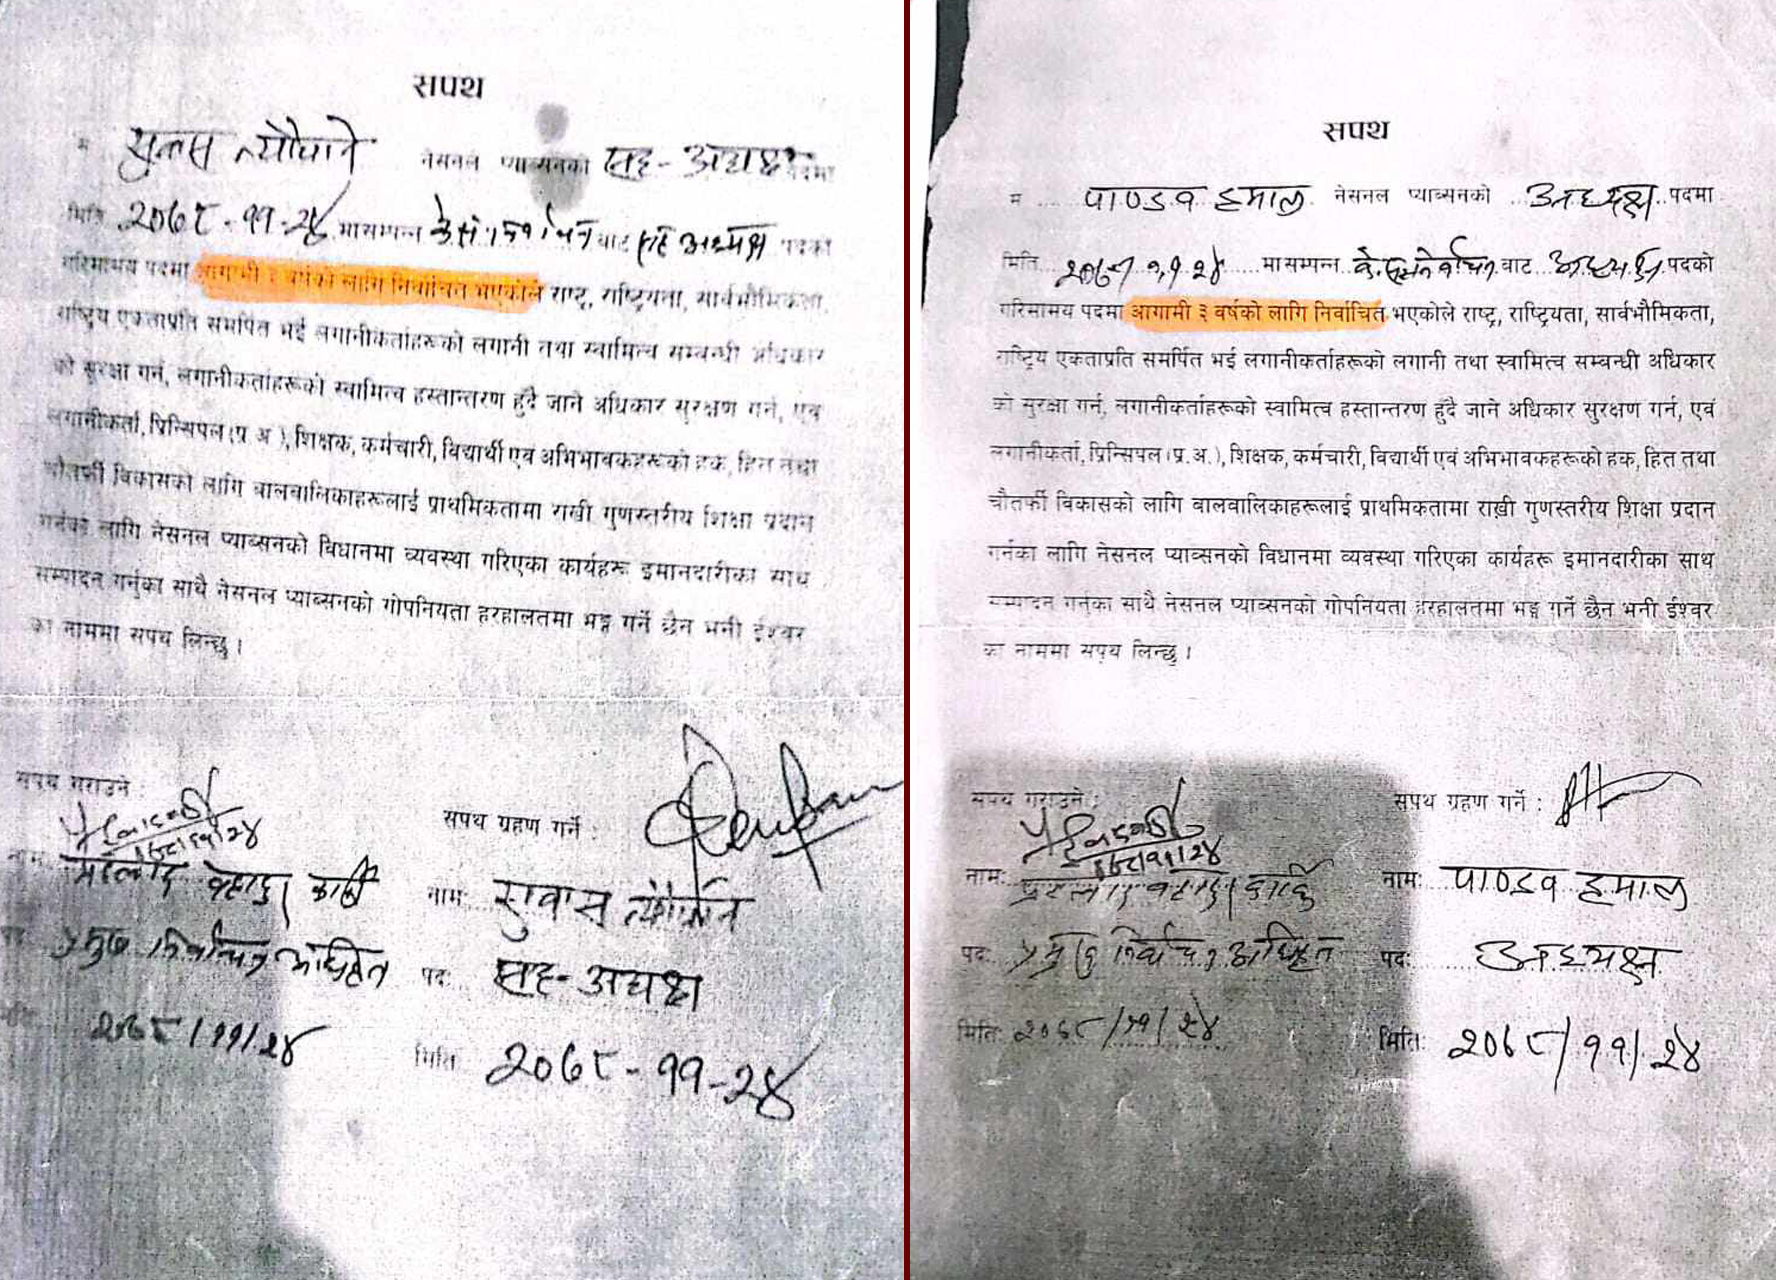 सपथ
म सुवास न्यौपाने नेसनल प्याब्सनको सह-अध्यक्ष पदमा
मिति २०७८-११-२४ मा सम्पन्न बाट सह अध्यक्ष पदको
गरिमामय पदमा आगामी ३ वर्षको लागि निर्वाचित भएकोले राष्ट्र, राष्ट्रियता, सार्वभौमिकता,
राष्ट्रिय एकताप्रति समर्पित भई लगानीकर्ताहरूको लगानी तथा स्वामित्व सम्बन्धी अधिकार
को सुरक्षा गर्न, लगानीकर्ताहरूको स्वामित्व हस्तान्तरण हुँदै जाने अधिकार सुरक्षण गर्न, एवं
लगानीकर्ता, प्रिन्सिपल (प्र.अ.), शिक्षक, कर्मचारी, विद्यार्थी एवं अभिभावकहरूको हक, हित तथा
चौतर्फी विकासको लागि बालबालिकाहरूलाई प्राथमिकतामा राखी गुणस्तरीय शिक्षा प्रदान
गर्नका लागि नेसनल प्याब्सनको विधानमा व्यवस्था गरिएका कार्यहरू इमानदारीका साथ
सम्पादन गर्नुका साथै नेसनल प्याब्सनको गोपनियता हरहालतमा भङ्ग गर्ने छैन भनी ईश्वर
का नाममा सपथ लिन्छु ।
सपथ गराउने :
सपथ ग्रहण गर्ने :
नाम:
नाम: सुवास न्यौपाने
पद: प्रमुख निर्वाचन अधिकृत
पद: सह-अध्यक्ष
मिति: २०७८/११/२४
मिति: २०७८-११-२४
सपथ
म पाण्डव हमाल नेसनल प्याब्सनको अध्यक्ष पदमा
मिति २०७८/११/२४ मा सम्पन्न बाट अध्यक्ष पदको
गरिमामय पदमा आगामी ३ वर्षको लागि निर्वाचित भएकोले राष्ट्र, राष्ट्रियता, सार्वभौमिकता,
राष्ट्रिय एकताप्रति समर्पित भई लगानीकर्ताहरूको लगानी तथा स्वामित्व सम्बन्धी अधिकार
को सुरक्षा गर्न, लगानीकर्ताहरूको स्वामित्व हस्तान्तरण हुँदै जाने अधिकार सुरक्षण गर्न, एवं
लगानीकर्ता, प्रिन्सिपल (प्र.अ.), शिक्षक, कर्मचारी, विद्यार्थी एवं अभिभावकहरूको हक, हित तथा
चौतर्फी विकासको लागि बालबालिकाहरूलाई प्राथमिकतामा राखी गुणस्तरीय शिक्षा प्रदान
गर्नका लागि नेसनल प्याब्सनको विधानमा व्यवस्था गरिएका कार्यहरू इमानदारीका साथ
सम्पादन गर्नुका साथै नेसनल प्याब्सनको गोपनियता हरहालतमा भङ्ग गर्ने छैन भनी ईश्वर
का नाममा सपथ लिन्छु ।
सपथ गराउने :
सपथ ग्रहण गर्ने :
नाम:
नाम: पाण्डव हमाल
पद: प्रमुख निर्वाचन अधिकृत
पद: अध्यक्ष
मिति: २०७८/११/२४
मिति: २०७८/११/२४